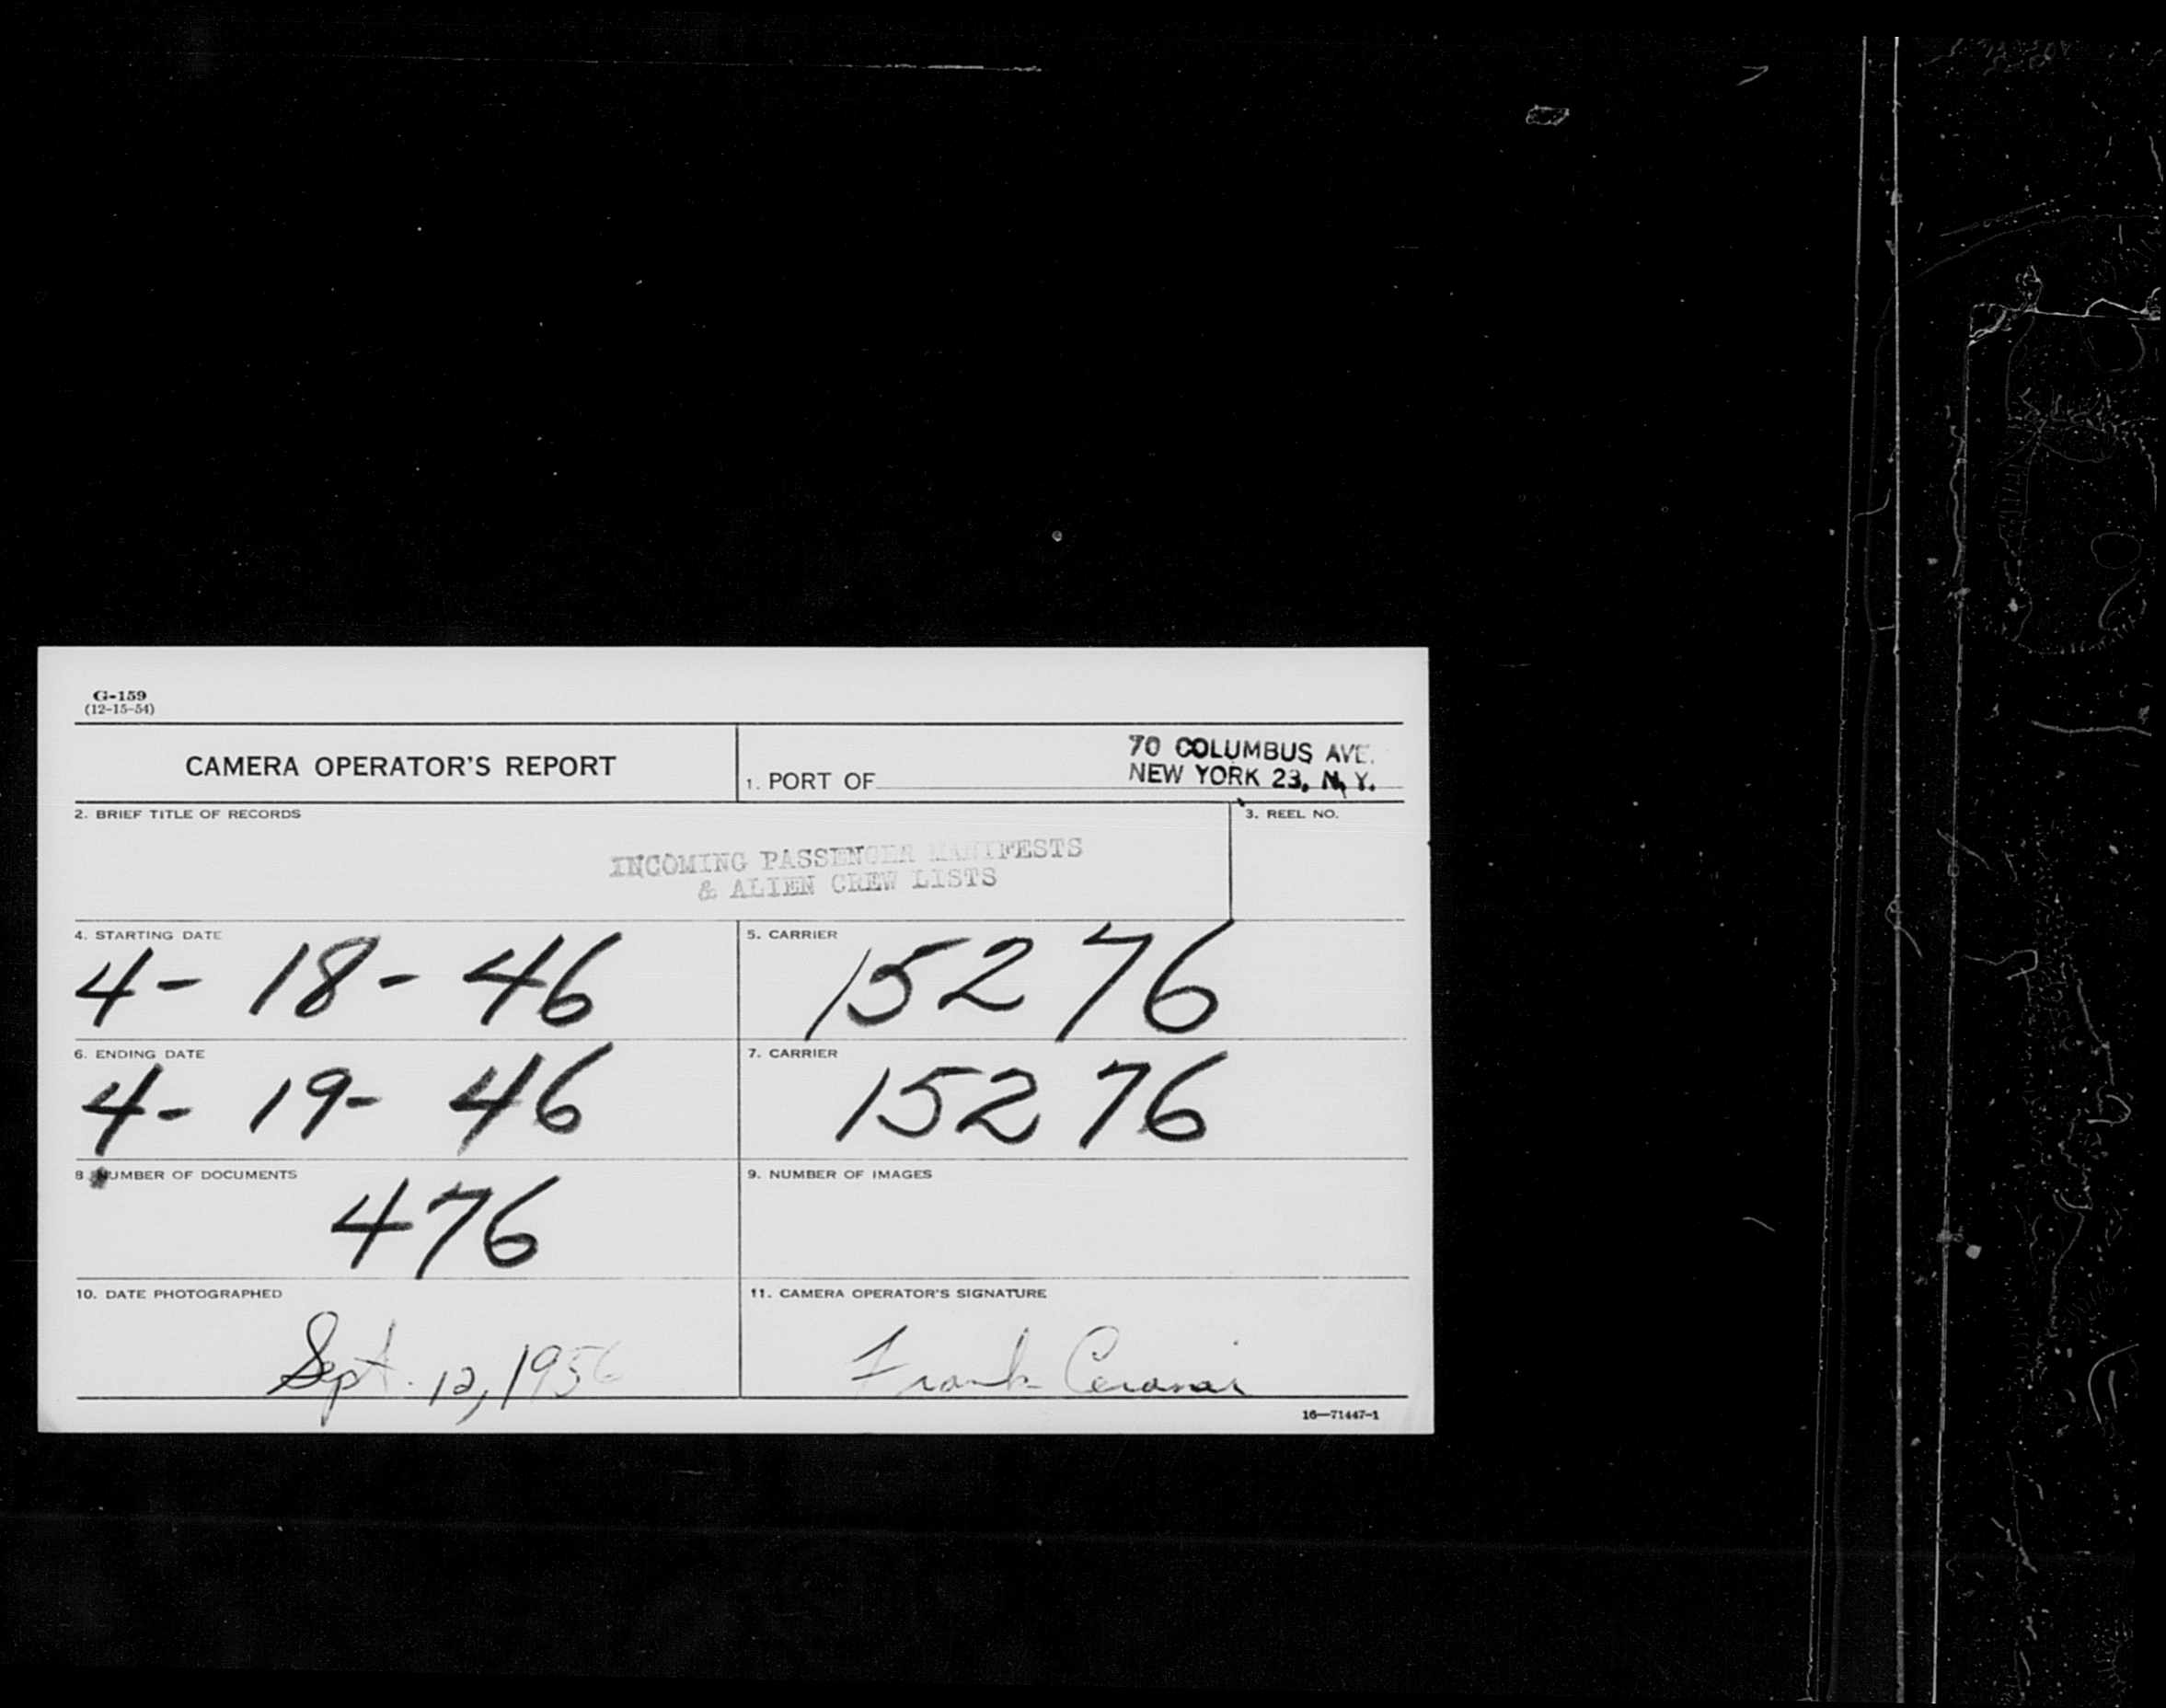 G-159
(12-15-54)
CAMERA OPERATOR'S REPORT
70 COLUMBUS AVE.
NEW YORK 23, N. Y.
1. PORT OF
2. BRIEF TITLE OF RECORDS
3. REEL NO.
INCOMING PASSENGER MANIFESTS
& ALIEN CREW LISTS
4. STARTING DATE
4- 18- 46
5. CARRIER
15276
6. ENDING DATE
4- 19- 46
7. CARRIER
15276
8. NUMBER OF DOCUMENTS
476
9. NUMBER OF IMAGES
10. DATE PHOTOGRAPHED
Sept. 12, 1956
11. CAMERA OPERATOR'S SIGNATURE
Frank
16—71447-1